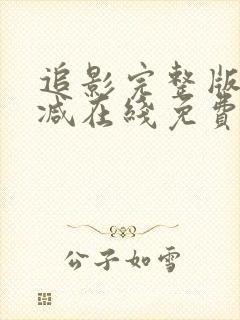 追影完整版
减在綫免費
公子如雪